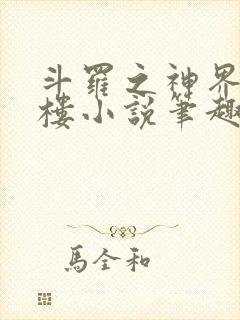 斗羅之神界
樓小說筆趣
馬全和